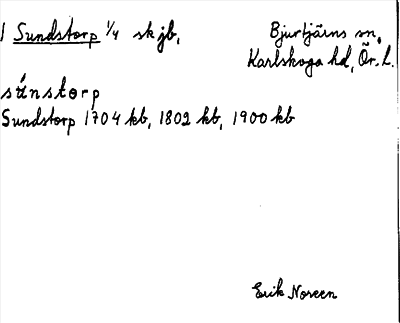 1 Sundstorp 1/4 skjb,
Bjurtjärns sn,
Karlskoga hd, Ör. l.
súnstorp
Sundstorp 1704 kb, 1802 kb, 1900 kb
Erik Noreen